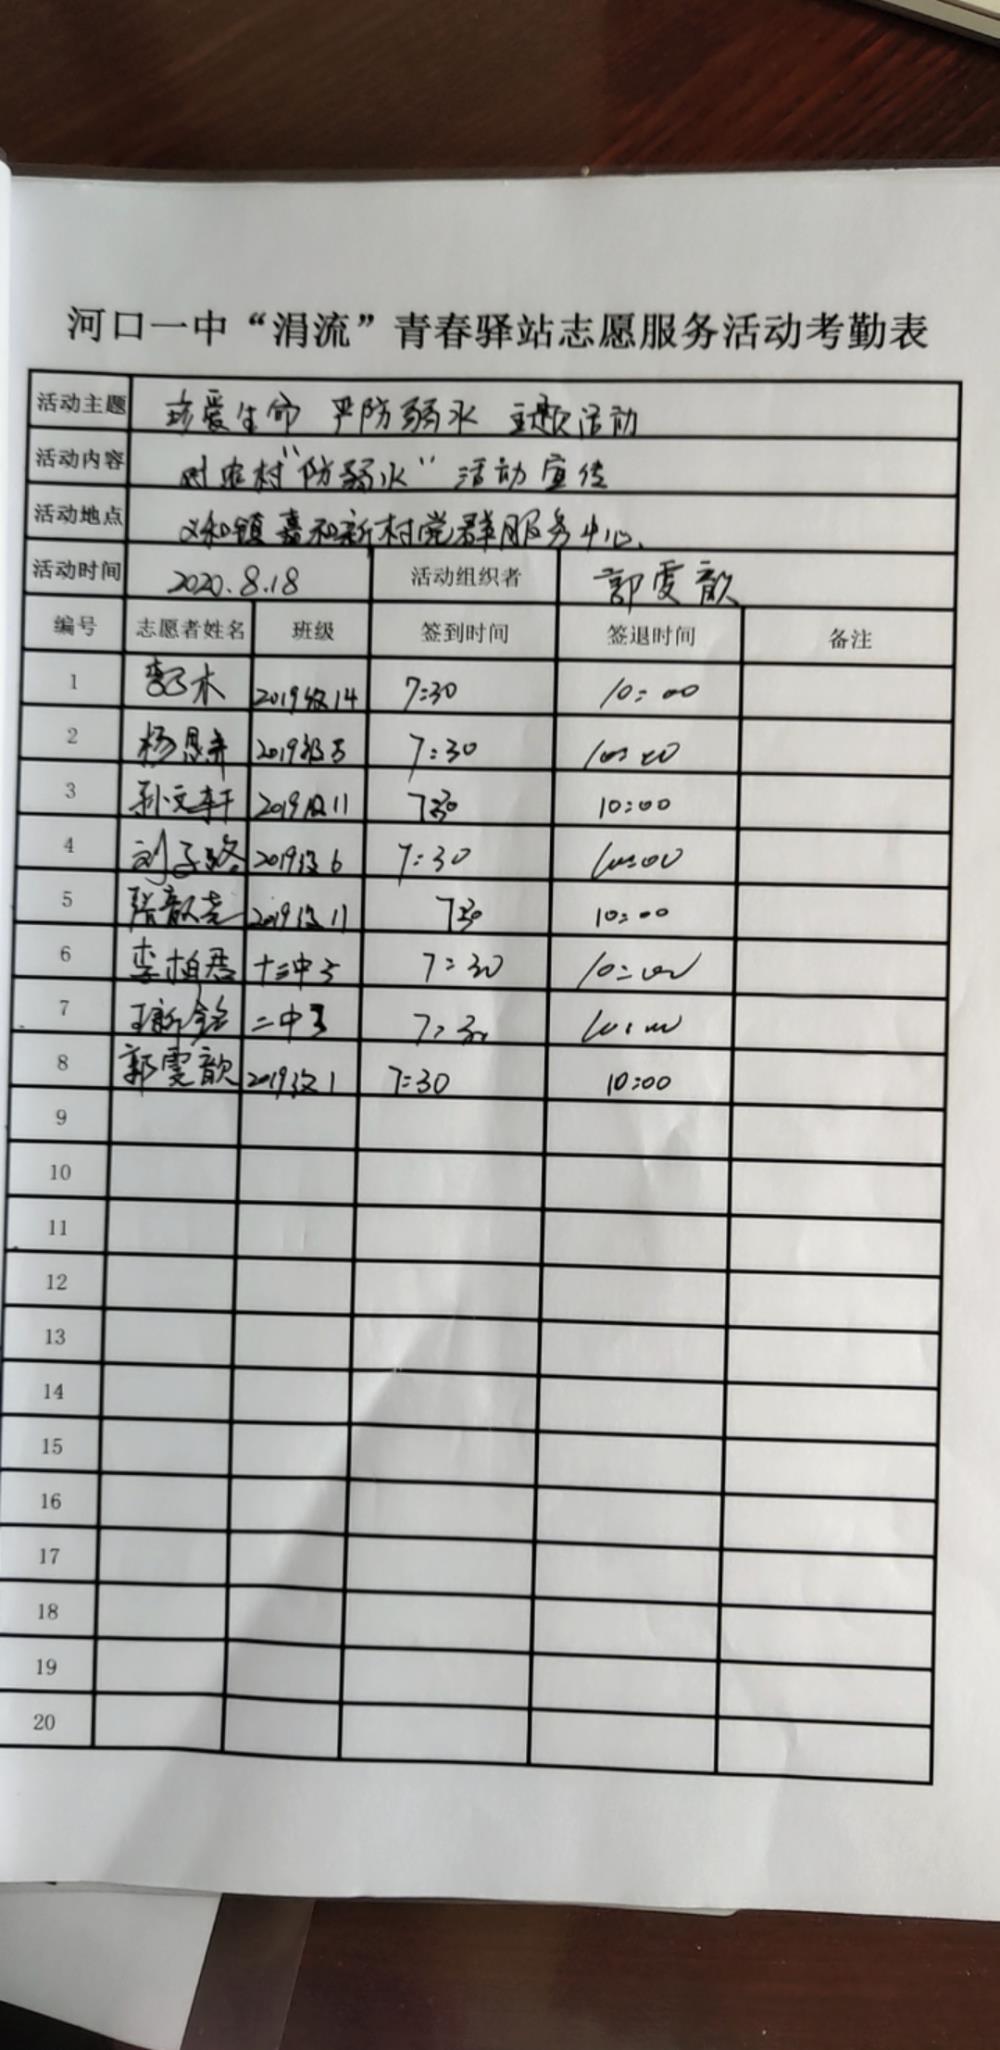 河口一中“涓流”青春驿站志愿服务活动考勤表
活动主题 珍爱生命 严防弱水 主题活动
活动内容 对农村“防弱水”活动宣传
活动地点 义和镇嘉和新村党群服务中心.
活动时间 2020.8.18 活动组织者 郭雯歆
编号 志愿者姓名 班级 签到时间 签退时间 备注
1 2019级14 7:30 10:00
2 2019级5 7:30 10:00
3 孙文轩 2019级11 7:30 10:00
4 刘子路 2019级6 7:30 10:00
5 张歆尧 2019级11 7:30 10:00
6 李柏君 7:30 10:00
7 王新铭 二中3 7:30 10:00
8 郭雯歆 2019级1 7:30 10:00
9
10
11
12
13
14
15
16
17
18
19
20